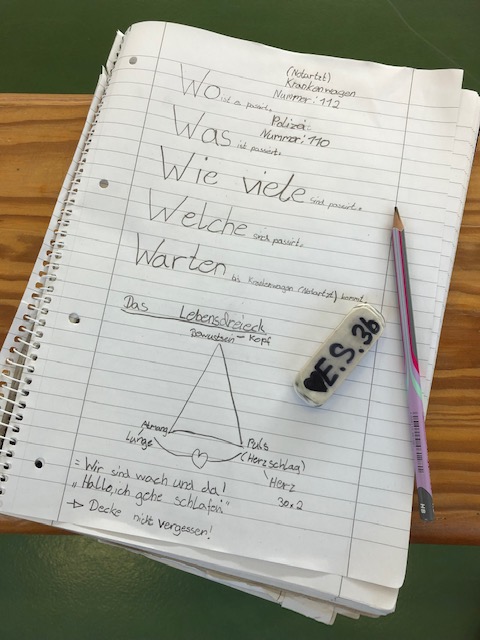 (Notartzt)
Krankenwagen
Nummer: 112
Wo ist es passiert.
Polizei:
Nummer: 110
Was ist passiert.
Wie viele sind passiert.
Welche sind passiert.
Warten bis Krankenwagen (Notartzt) kommt.
Das Lebensdreieck
Bewustsein - Kopf
Atmung
Lunge
Puls
(Herzschlag)
Herz
30x2
= Wir sind wach und da!
"Hallo, ich gehe schlafen"
→ Decke nicht vergessen!
♥E.S.3b
HB